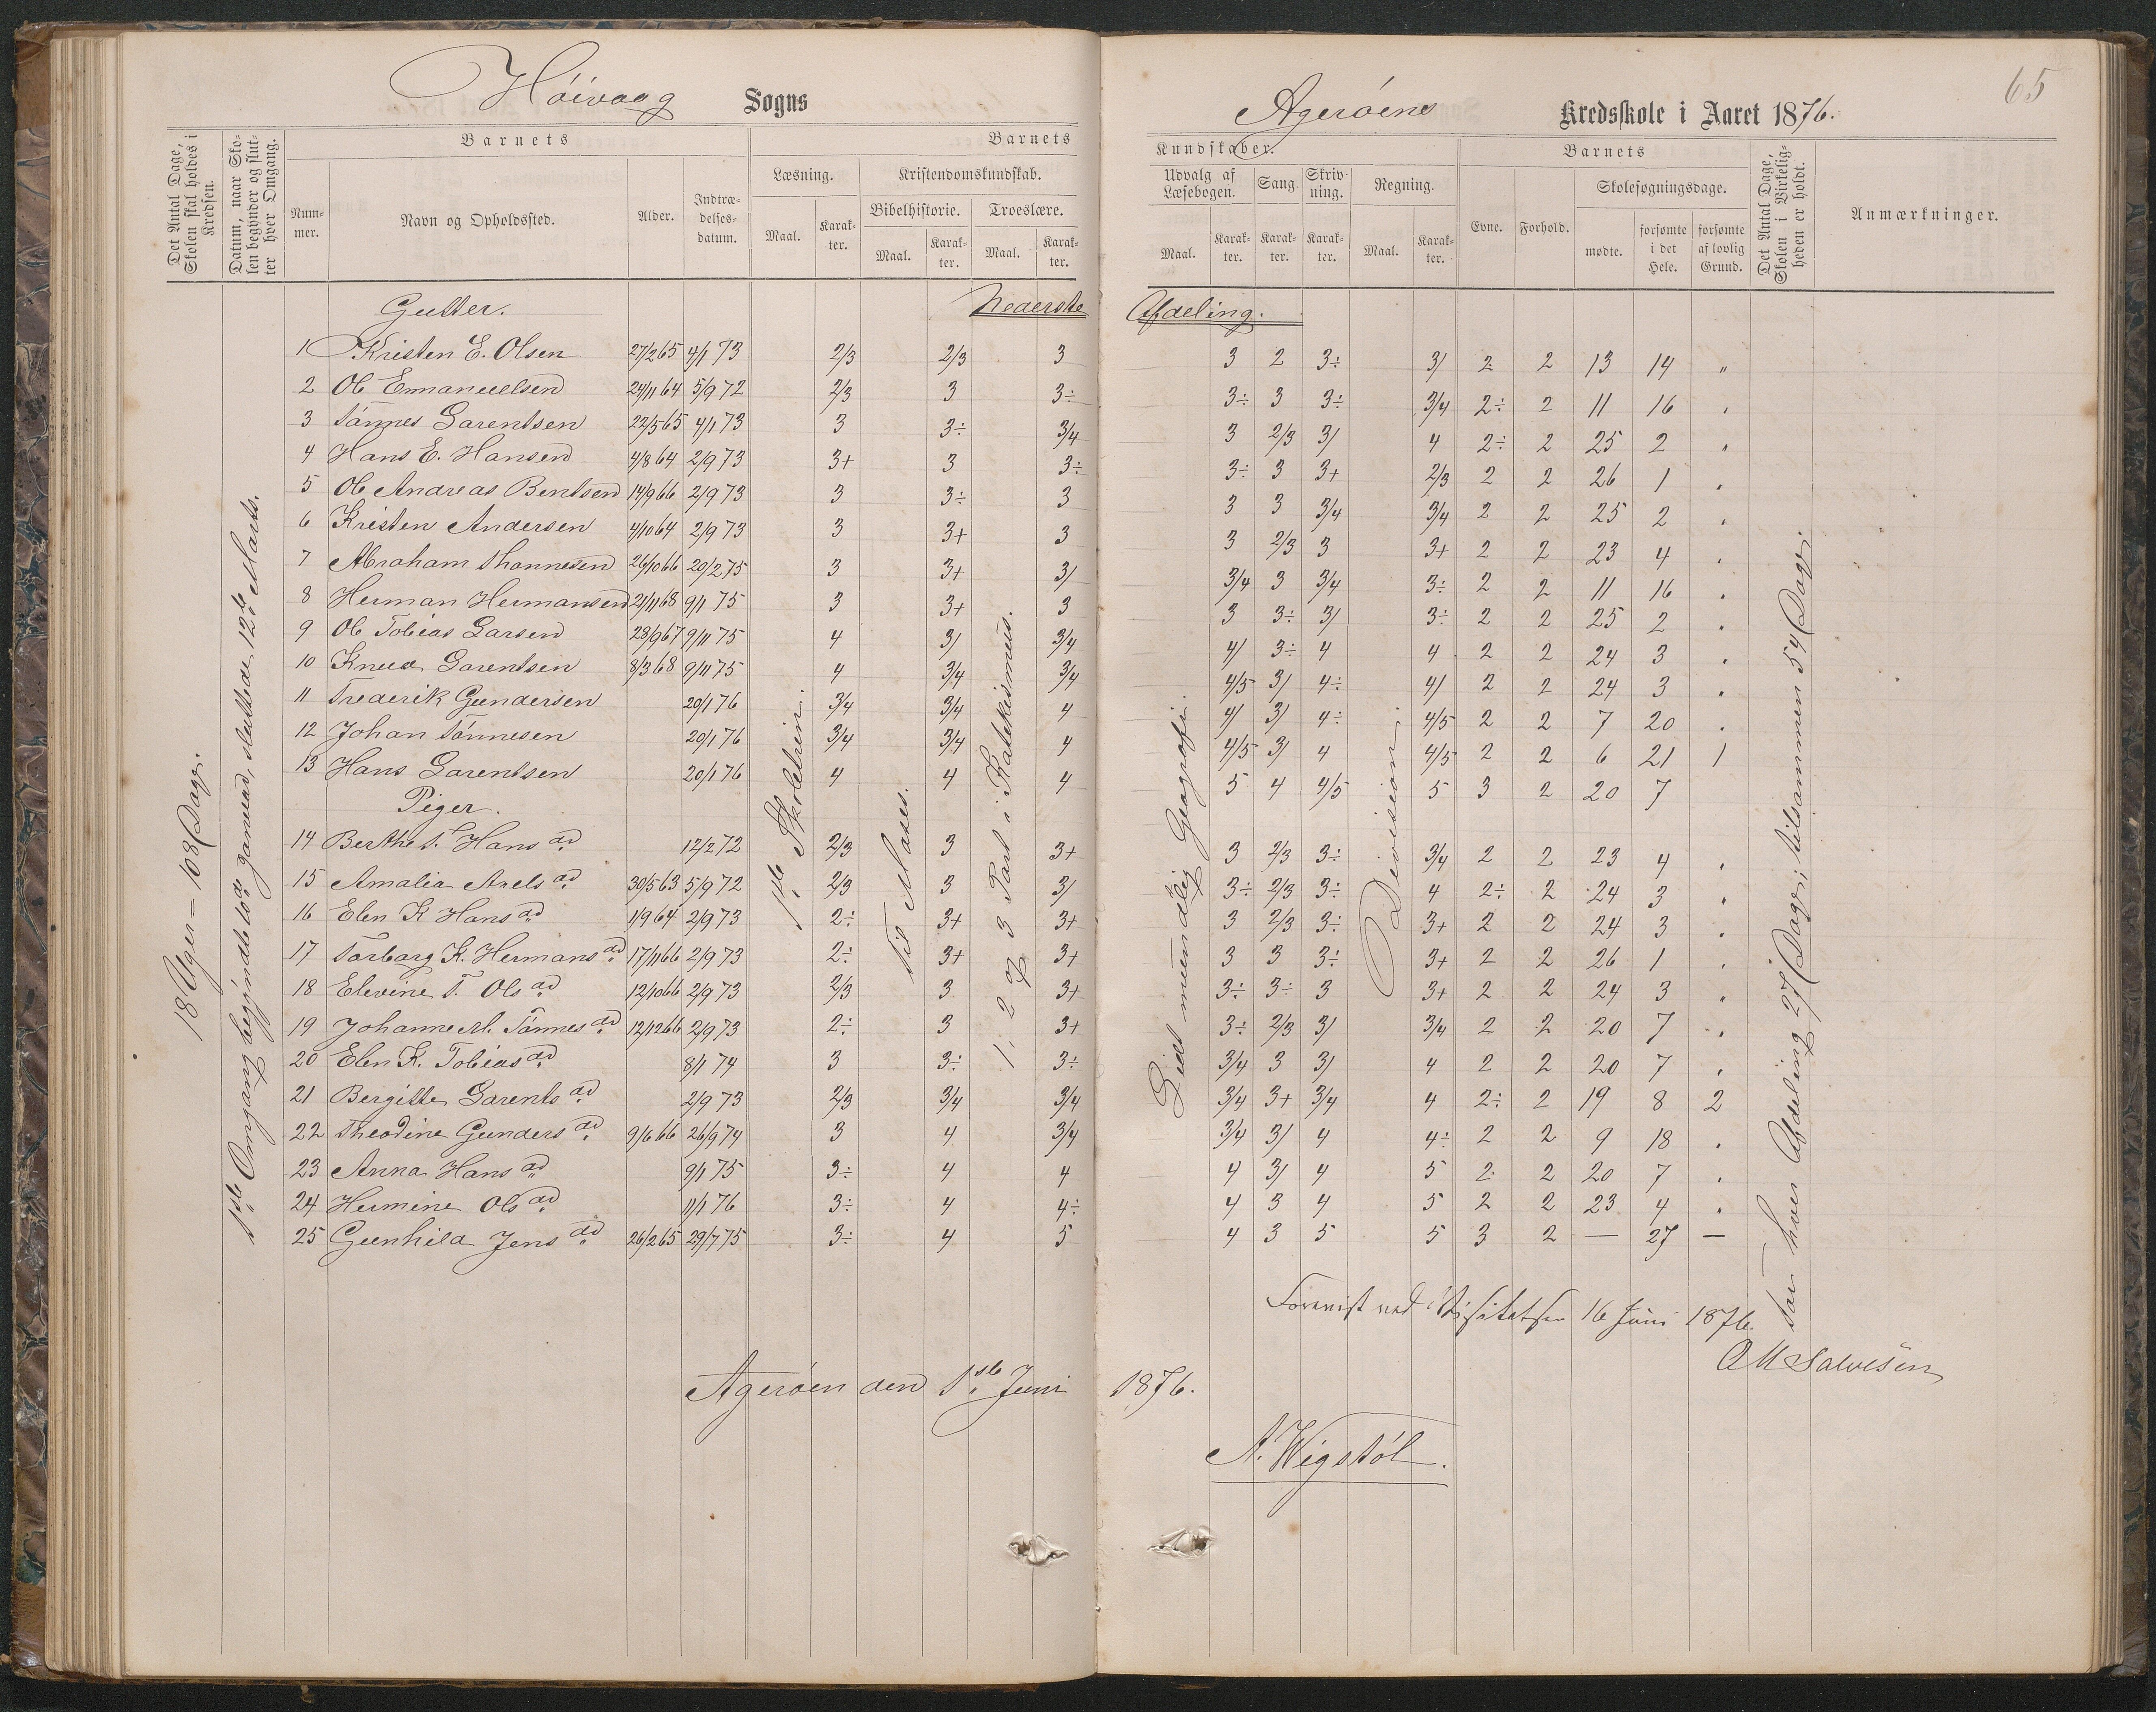 Höivaag Sogns
Agerøens Kredsskole i Aaret 1876.
65
Det Antal Dage, Skolen skal holdes i Kredsen.
Datum, naar Skolen begynder og slutter hver Omgang.
Barnets
Nummer.
Navn og Opholdssted.
Alder.
Indtrædelsesdatum.
Barnets
Kundskaber.
Læsning.
Maal.
Karakter.
Kristendomskundskab.
Bibelhistorie.
Maal.
Karakter.
Troeslære.
Maal.
Karakter.
Udvalg af Læsebogen.
Maal.
Karakter.
Sang.
Karakter.
Skrivning.
Karakter.
Regning.
Maal.
Karakter.
Barnets
Evne.
Forhold.
Skolesøgningsdage.
mødte.
forsømte i det Hele.
forsømte af lovlig Grund.
Det Antal Dage, Skolen i Virkeligheden er holdt.
Anmærkninger.
Nederste Afdeling.
Gutter.
1 Kristen E. Olsen 27/2 65 4/1 73 2/3 2/3 3 3 2 3÷ 3/ 2 2 13 14 "
2 Ole Emanuelsen 24/11 64 5/9 72 2/3 3 3÷ 3÷ 3 3÷ 3/4 2÷ 2 11 16 .
3 Tönnes Larentsen 22/5 65 4/1 73 3 3÷ 3/4 3 2/3 3/ 4 2÷ 2 25 2 "
4 Hans E. Hansen 4/8 64 2/9 73 3+ 3 3÷ 3÷ 3 3+ 2/3 2 2 26 1 .
5 Ole Andreas Bentsen 14/9 66 2/9 73 3 3÷ 3 3 3 3/4 3/4 2 2 25 2 .
6 Kristen Andersen 4/10 64 2/9 73 3 3+ 3 3 2/3 3 3+ 2 2 23 4 .
7 Abraham Thonnesen 26/10 66 20/2 75 3 3+ 3/ 3/4 3 3/4 3÷ 2 2 11 16 .
8 Herman Hermansen 21/11 68 9/1 75 3 3+ 3 3 3÷ 3/ 3÷ 2 2 25 2 .
9 Ole Tobias Larsen 23/9 67 9/11 75 4 3/ 3/4 4/ 3÷ 4 4 2 2 24 3 .
10 Knud Larentsen 8/3 68 9/11 75 4 3/4 3/4 4/5 3/ 4÷ 4/ 2 2 24 3 .
11 Frederik Gundersen 20/1 76 3/4 3/4 4 4/ 3/ 4÷ 4/5 2 2 7 20 .
12 Johan Tönnesen 20/1 76 3/4 3/4 4 4/5 3/ 4 4/5 2 2 6 21 1
13 Hans Larentsen 20/1 76 4 4 4 5 4 4/5 5 3 2 20 7
Piger.
14 Berthe T. Hansad 12/2 72 2/3 3 3+ 3 2/3 3÷ 3/4 2 2 23 4 .
15 Amalia Axelsad 30/5 63 5/9 72 2/3 3 3/ 3÷ 2/3 3÷ 4 2÷ 2 24 3 .
16 Elen K Hansad 1/9 64 2/9 73 2÷ 3+ 3+ 3 2/3 3÷ 3+ 2 2 24 3 .
17 Torborg K. Hermansad 17/11 66 2/9 73 2÷ 3+ 3+ 3 3 3÷ 3+ 2 2 26 1 .
18 Elevine T. Olsad 12/10 66 2/9 73 2/3 3 3+ 3÷ 3÷ 3 3+ 2 2 24 3 .
19 Johanne M. Tönnesad 12/12 66 2/9 73 2÷ 3 3+ 3÷ 2/3 3/ 3/4 2 2 20 7 .
20 Elen K. Tobiasad 8/1 74 3 3÷ 3÷ 3/4 3 3/ 4 2 2 20 7 .
21 Bergitte Larentsad 2/9 73 2/3 3/4 3/4 3/4 3+ 3/4 4 2÷ 2 19 8 2
22 Theodine Gundersad 9/6 66 26/9 74 3 4 3/4 3/4 3/ 4 4÷ 2 2 9 18 .
23 Anna Hansad 9/1 75 3÷ 4 4 4 3/ 4 5 2 2 20 7 .
24 Hermine Olsad 11/1 76 3÷ 4 4÷ 4 3 4 5 2 2 23 4 .
25 Gunhild Jensad 26/2 65 29/7 75 3÷ 4 5 4 3 5 5 3 2 — 27 —
18 Uger = 108 Dage.
1ste Omgang begyndte 10de Januar, sluttede 12te Marts.
1ste Skoletrin.
Til Moses.
1. 2 og 3 Part i Katekismus.
Lidt mundtlig Geografi.
Division.
For hver Afdeling 27 Dage; tilsammen 54 Dage.
Forevist ved Visitatsen 16 Juni 1876.
OM Salvesen
Agerøen den 1ste Juni 1876.
A. Wigstöl.